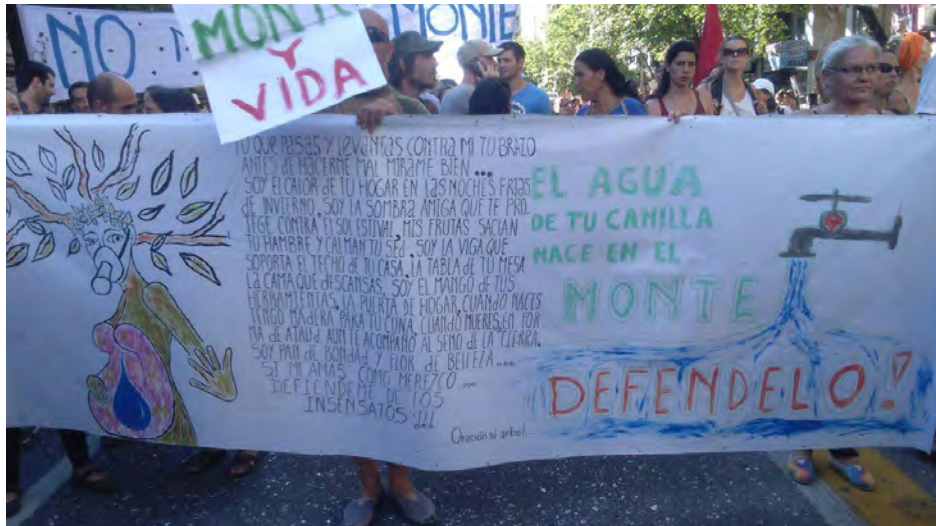 NO
MONTE
MONTE
Y
VIDA
TU QUE PASAS Y LEVANTAS CONTRA MI TU BRAZO
ANTES DE HACERME MAL MIRAME BIEN...
SOY EL CALOR DE TU HOGAR EN LAS NOCHES FRIAS
DE INVIERNO, SOY LA SOMBRA AMIGA QUE TE PRO
TEGE CONTRA El SOL ESTIVAL, MIS FRUTAS SACIAN
TU HAMBRE Y CALMAN TU SED. SOY LA VIGA QUE
SOPORTA EL TECHO DE TU CASA, LA TABLA DE TU MESA
LA CAMA QUE DESCANSAS. SOY EL MANGO DE TUS
HERRAMIENTAS, LA PUERTA DE HOGAR, CUANDO NACES
TENGO MADERA PARA TU CUNA, CUANDO MUERES, EN FOR
MA DE ATAUD AUN TE ACOMPAÑO AL SENO DE LA TIERRA.
SOY PAN DE BONDAD Y FLOR DE BELLEZA....
SI ME AMAS COMO MEREZCO...
DEFIENDEME DE LOS
INSENSATOS !!!
Oración al arbol.
EL AGUA
DE TU CANILLA
NACE EN EL
MONTE
DEFENDELO!